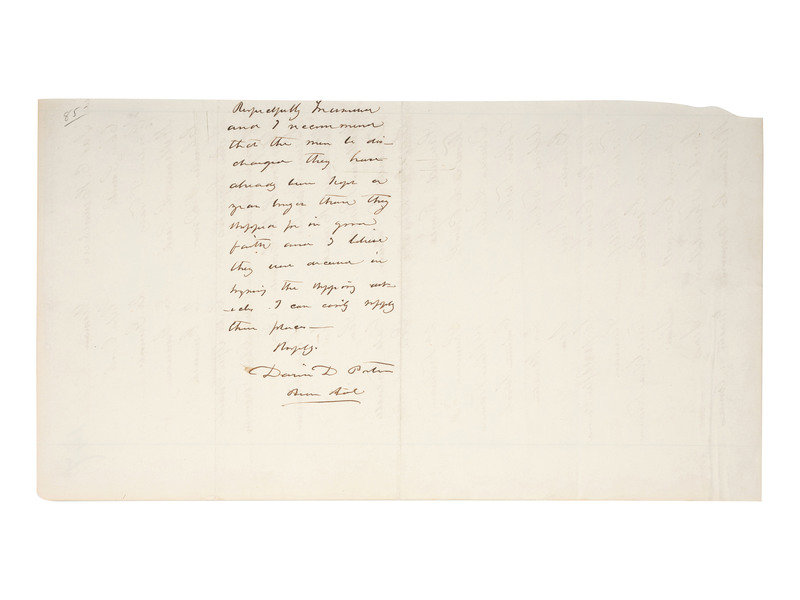 85-
Respectfully Transmitted
and I recommend
that the men be dis-
charged they have
already been kept a
year longer than they
shipped for in good
faith and I believe
they were deceived in
signing the shipping art-
icles. I can easily supply
their places—
Respy.
David D Porter
Rear Adl